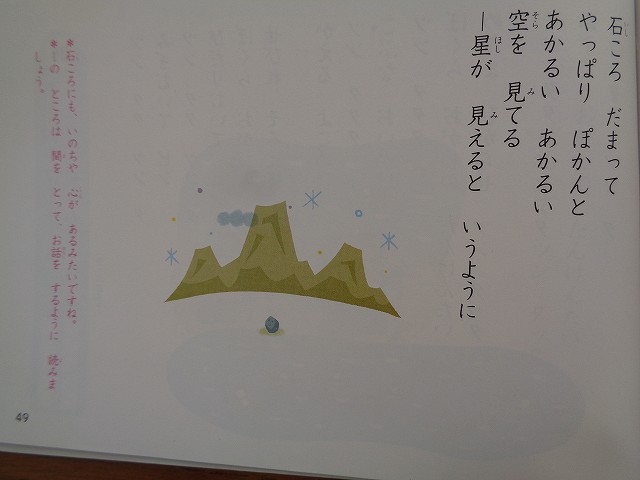 石ころ だまって
やっぱり ぽかんと
あかるい あかるい
空を 見てる
―星が 見えると いうように
*石ころにも、いのちや 心が あるみたいですね。
*―の ところは 間を とって、お話を するように 読みま
しょう。
49